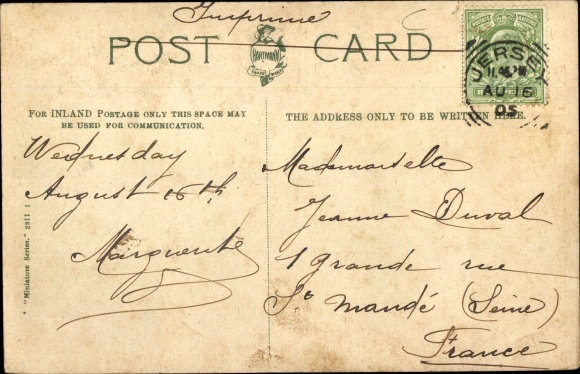 Imprimé
POST CARD
HARTMANN
TRADE MARK
POSTAGE
JERSEY
AU 16
05
FOR INLAND POSTAGE ONLY THIS SPACE MAY
BE USED FOR COMMUNICATION.
THE ADDRESS ONLY TO BE WRITTEN HERE.
Wednesday
August 16th
Marguerite
Mademoiselle
Jeanne Duval
1 grande rue
St Mandé (Seine)
France
"Miniature Series." 2811 1